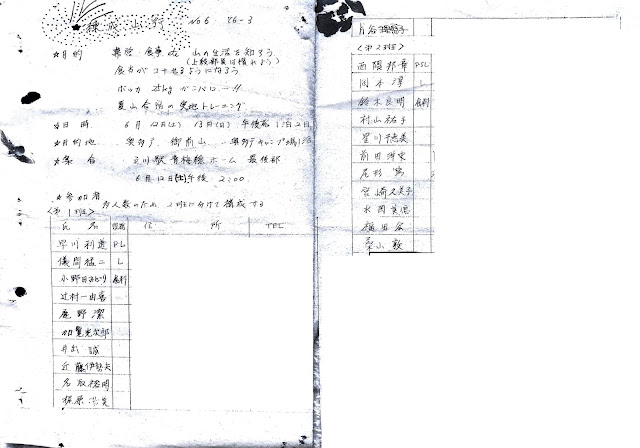 錬成山行 No6 76-3
★目的 幕営、食事 etc 山の生活を知ろう
(上級部員は慣れよう)
食当がコナせるようになろう
ボッカ 25kg ガンバロー!!
夏山合宿の実地トレーニング
★日時 6月12日(土) 13日(日) 午後発1泊2日
★目的地 奥多摩 御前山
★集合 立川駅青梅線ホーム 最後部
6月12日(土)午後 2:00
★参加者 多人数のため 2班に分けて構成する
<第1班>
氏名 役務 住所 TEL
早川利道 PL
儀間猛二 L
小野田みどり 食料
辻村一由喜
鹿野潔
加覧憲次郎
井出誠
近藤伊勢夫
名取裕明
梶原
<第2班>
西隈邦章 PSL
岡本淳 L
鈴木良明 食料
村山祐子
星川千恵美
前田
尾形篤
宮崎久美子
水岡
稲田谷
桑山敦